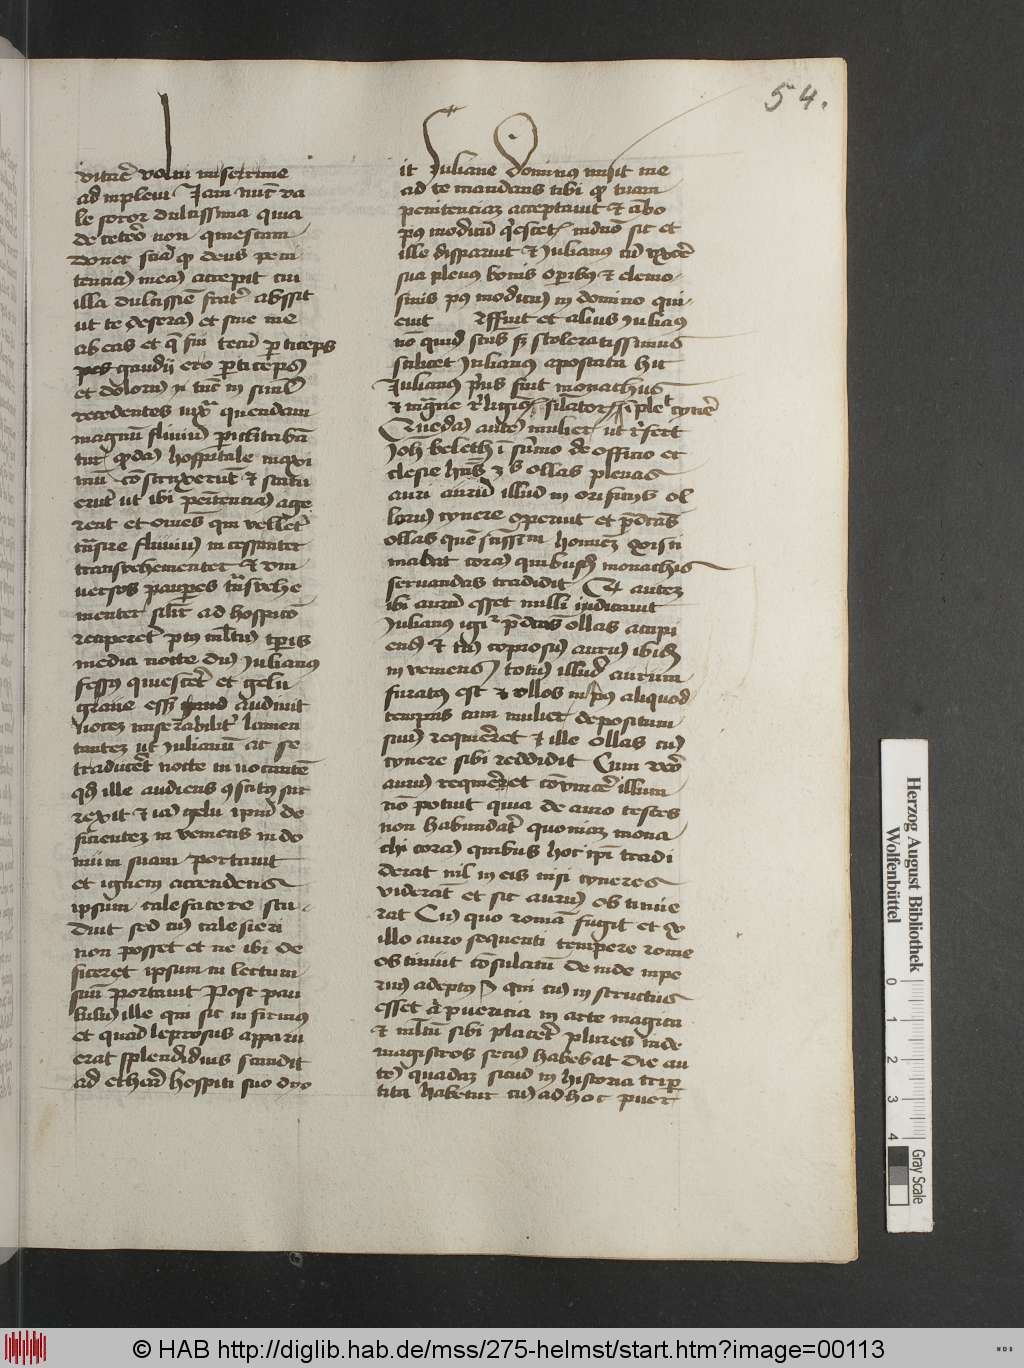 54.
vitare volui miserrime
ad inplevi Jam nunc va
le soror dulcissima quia
de cetero non quiescam
donec sciam quod deus peni
tenciam meam accepit cui
illa dulcissime frater abssit
ut te deseram et sine me
abeas et que fui tecum particeps
gaudij ero particeps
et doloris Tunc in simul
recedentes iuxta quendam
magnum fluvium
hospitale maxi
mum construxerunt et statu
erunt ut ibi penitenciam age
rent et omnes qui vellent
transire fluvium incessanter
transveherent et uni
versos pauperes
hospicio
reciperent post multum temporis
media nocte dum Julianus
fessus quiesceret et gelu
grave esset audivit
vocem miserabiliter lamen
tantem ut Julianum ac se
traduceret nocte invocantem
quod ille audiens concitus sur
rexit et iam gelu ipsum de
ficientem inveniens in do
mum suam portavit
et ignem accendens
ipsum calefacere stu
duit sed cum calefieri
non posset et ne ibi de
ficeret ipsum in lectum
suum portavit Post pau
lulum ille qui sic infirmus
et quasi leprosus apparu
erat splendidius scandit
ad ethera hospiti suo
it Juliane dominus misit me
ad te mandans tibi quod tuam
penitenciam acceptavit et ambo
post modicum quiescetis in domino sic et
ille disparuit et Julianus cum uxore
sua plenus bonis operibus et elemo
sinis post modicum in domino qui
evit Fuit et alius Julianus
non quidem sanctus sed sceleratissimus
scilicet Julianus apostata hic
Julianus primus fuit monachus
et magne religionis simulator
Quedam autem mulier ut refert
Joh beleth in summo de officio ec
clesie habens 3 ollas plenas
auri aurum illud in orificiis ol
larum cynere operuit et predictas
ollas quem sanctissimum hominem existi
mabat coram quibusdam monachis
servandas tradidit Quod autem
ibi aurum esset nulli indicavit
Julianus igitur predictas ollas accipi
ens et tam copiosum aurum ibidem
inveniens totum illud aurum
furatus est et ollas
tempus cum mulier depositum
suum requireret et ille ollas cum
cynere sibi reddidit Cum vero
aurum requireret convincere illum
non potuit quia de auro testes
non habundat quoniam mona
chi coram quibus hoc ipsi tradi
derat nil in eis nisi cyneres
viderat et sic aurum obtinue
rat Cum quo romam fugit et ex
illo auro sequenti tempere rome
obtinuit consulatum Deinde inpe
rium adeptus qui cum instructus
esset a puericia in arte magica
et multum sibi placeret plures inde
magistros secum habebat Die au
tem quadam sicud in historia trip
tita habetur cum adhoc puer
Herzog August Bibliothek
Wolfenbüttel
0 1 2 3 4
Gray Scale
© HAB http://diglib.hab.de/mss/275-helmst/start.htm?image=00113